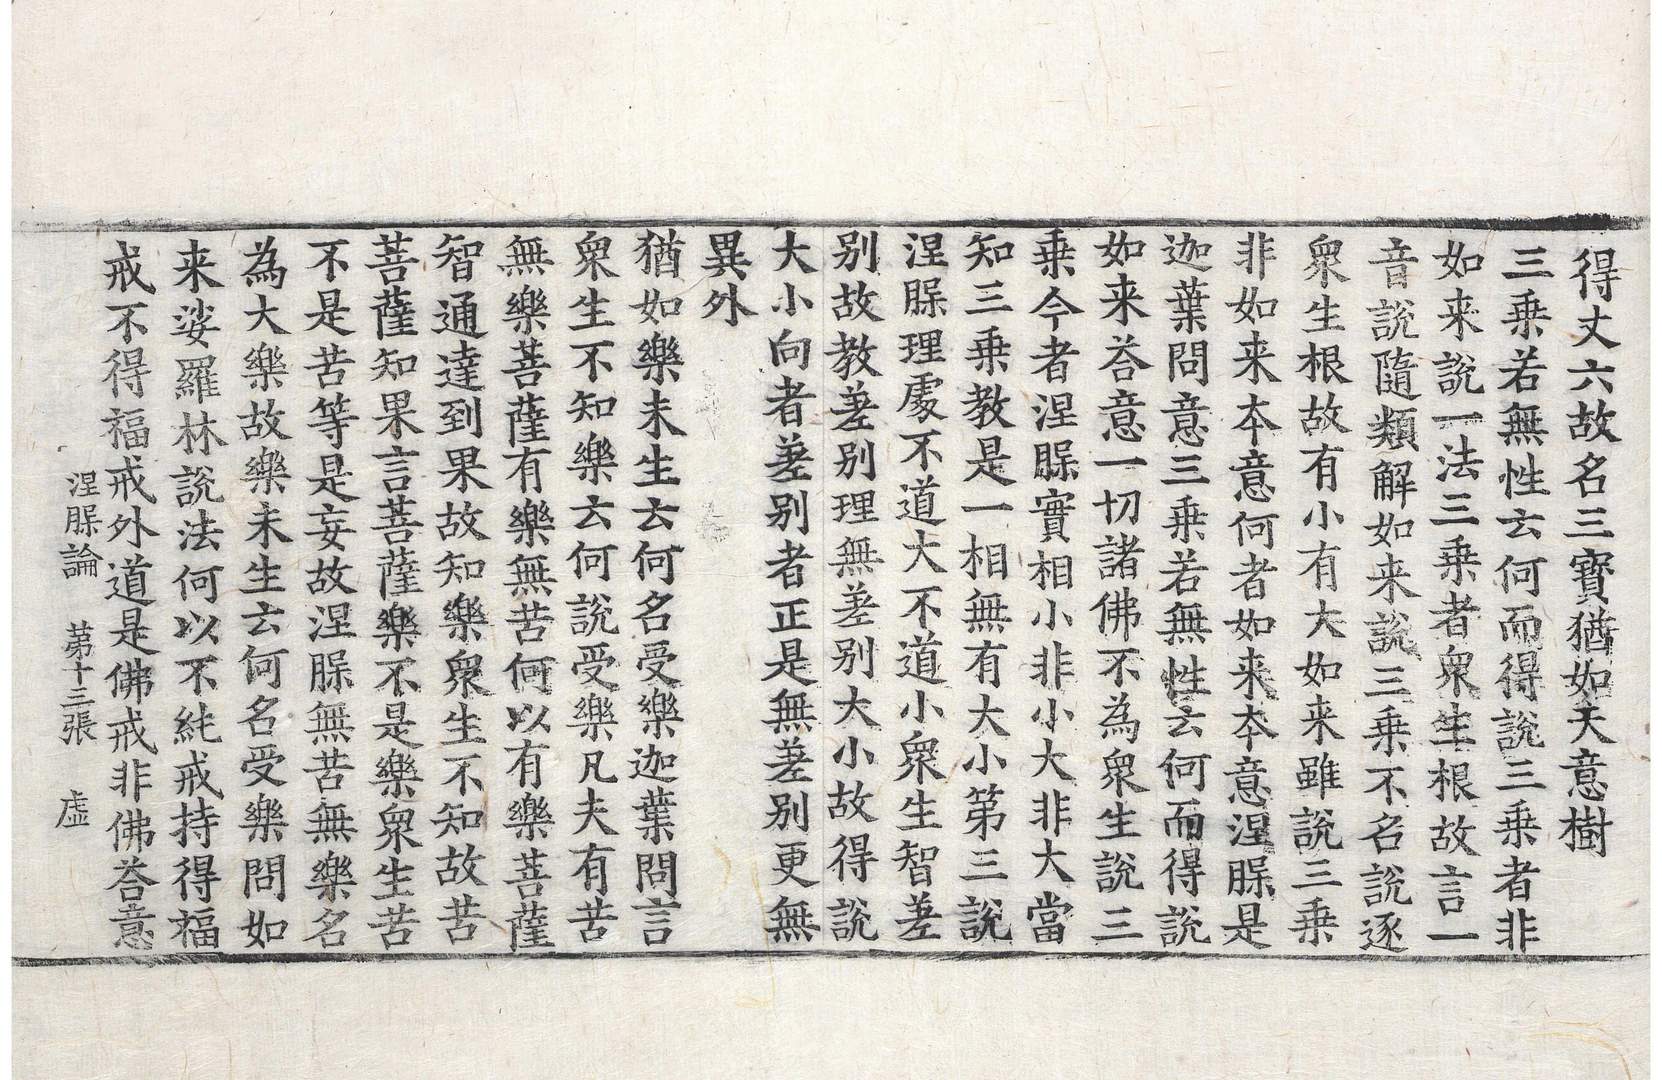 得丈六故名三寶猶如天意樹
三乗若無性云何而得說三乗者非
如来說一法三乗者衆生根故言一
音說隨類解如来說三乗不名說逐
衆生根故有小有大如来雖說三乗
非如来本意何者如来本意涅槃是
迦葉問意三乗若無性云何而得說
如来荅意一切諸佛不為衆生說三
乗今者涅槃實相小非小大非大當
知三乗教是一相無有大小第三說
涅槃理處不道大不道小衆生智差
别故教差别理無差别大小故得說
大小向者差别者正是無差别更無
異外
猶如樂未生云何名受樂迦葉問言
衆生不知樂云何說受樂凡夫有苦
無樂菩薩有樂無苦何以有樂菩薩
智通達到果故知樂衆生不知故苦
菩薩知果言菩薩樂不是樂衆生苦
不是苦等是妄故涅槃無苦無樂名
為大樂故樂未生云何名受樂問如
来娑羅林說法何以不純戒持得福
戒不得福戒外道是佛戒非佛荅意
涅槃論 第十三張 虛